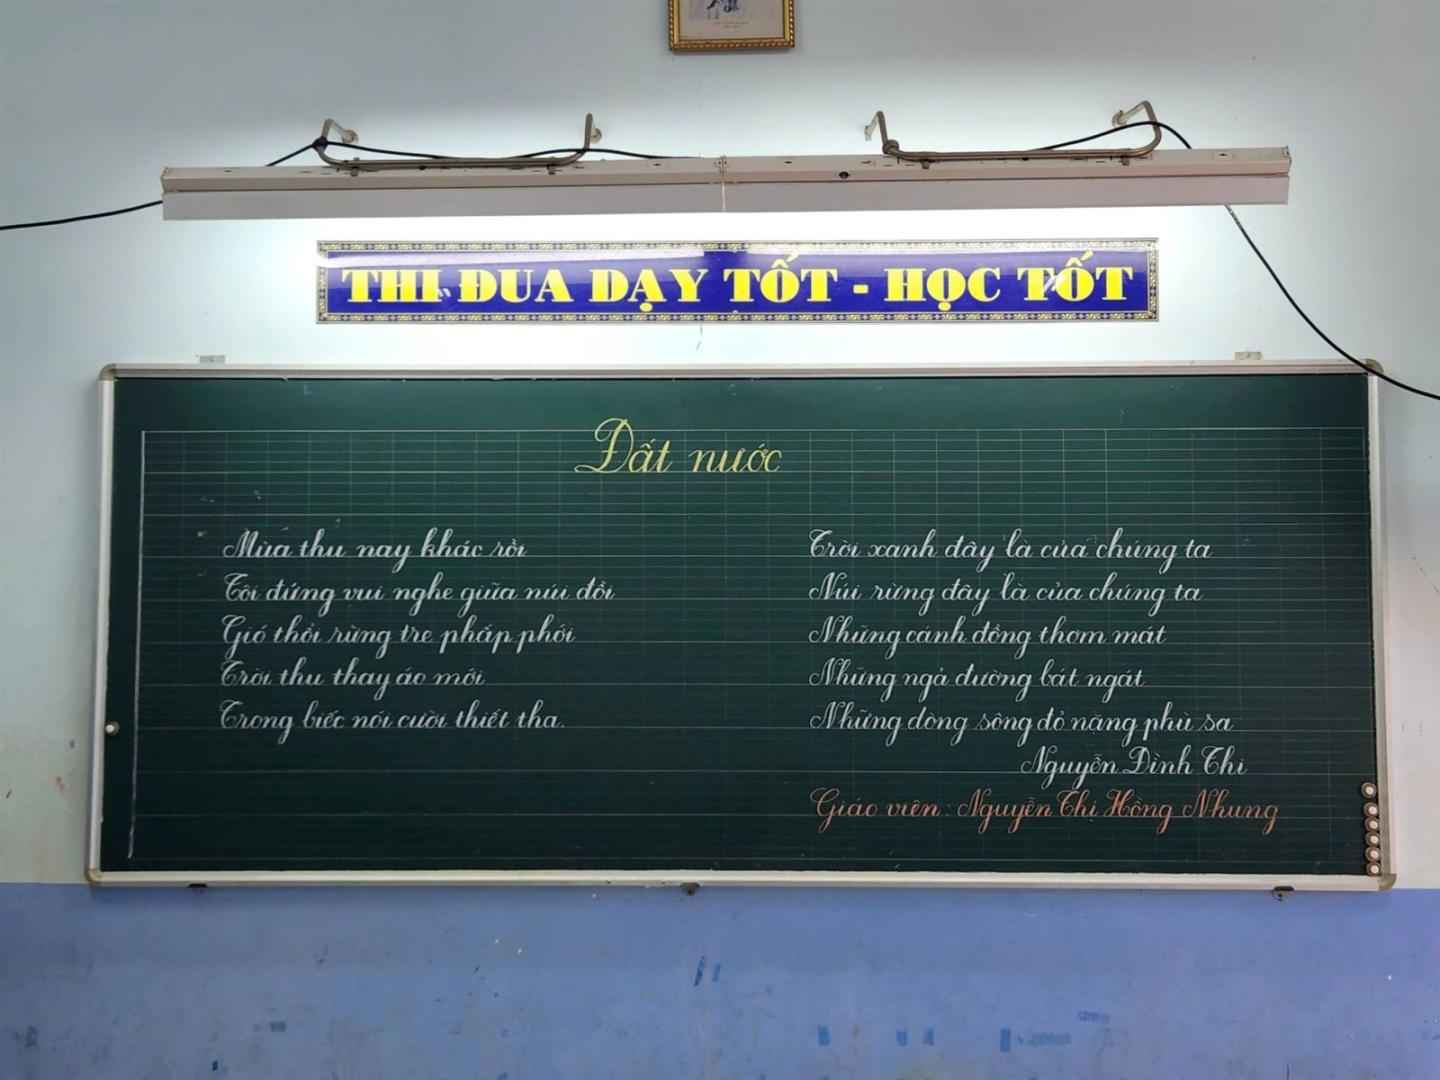 THI ĐUA DẠY TỐT - HỌC TỐT
Đất nước
Mùa thu nay khác rồi
Tôi đứng vui nghe giữa núi đồi
Gió thổi rừng tre phấp phới
Trời thu thay áo mới
Trong biếc nói cười thiết tha.
Trời xanh đây là của chúng ta
Núi rừng đây là của chúng ta
Những cánh đồng thơm mát
Những ngả đường bát ngát
Những dòng sông đỏ nặng phù sa
Nguyễn Đình Thi
Giáo viên: Nguyễn Thị Hồng Nhung